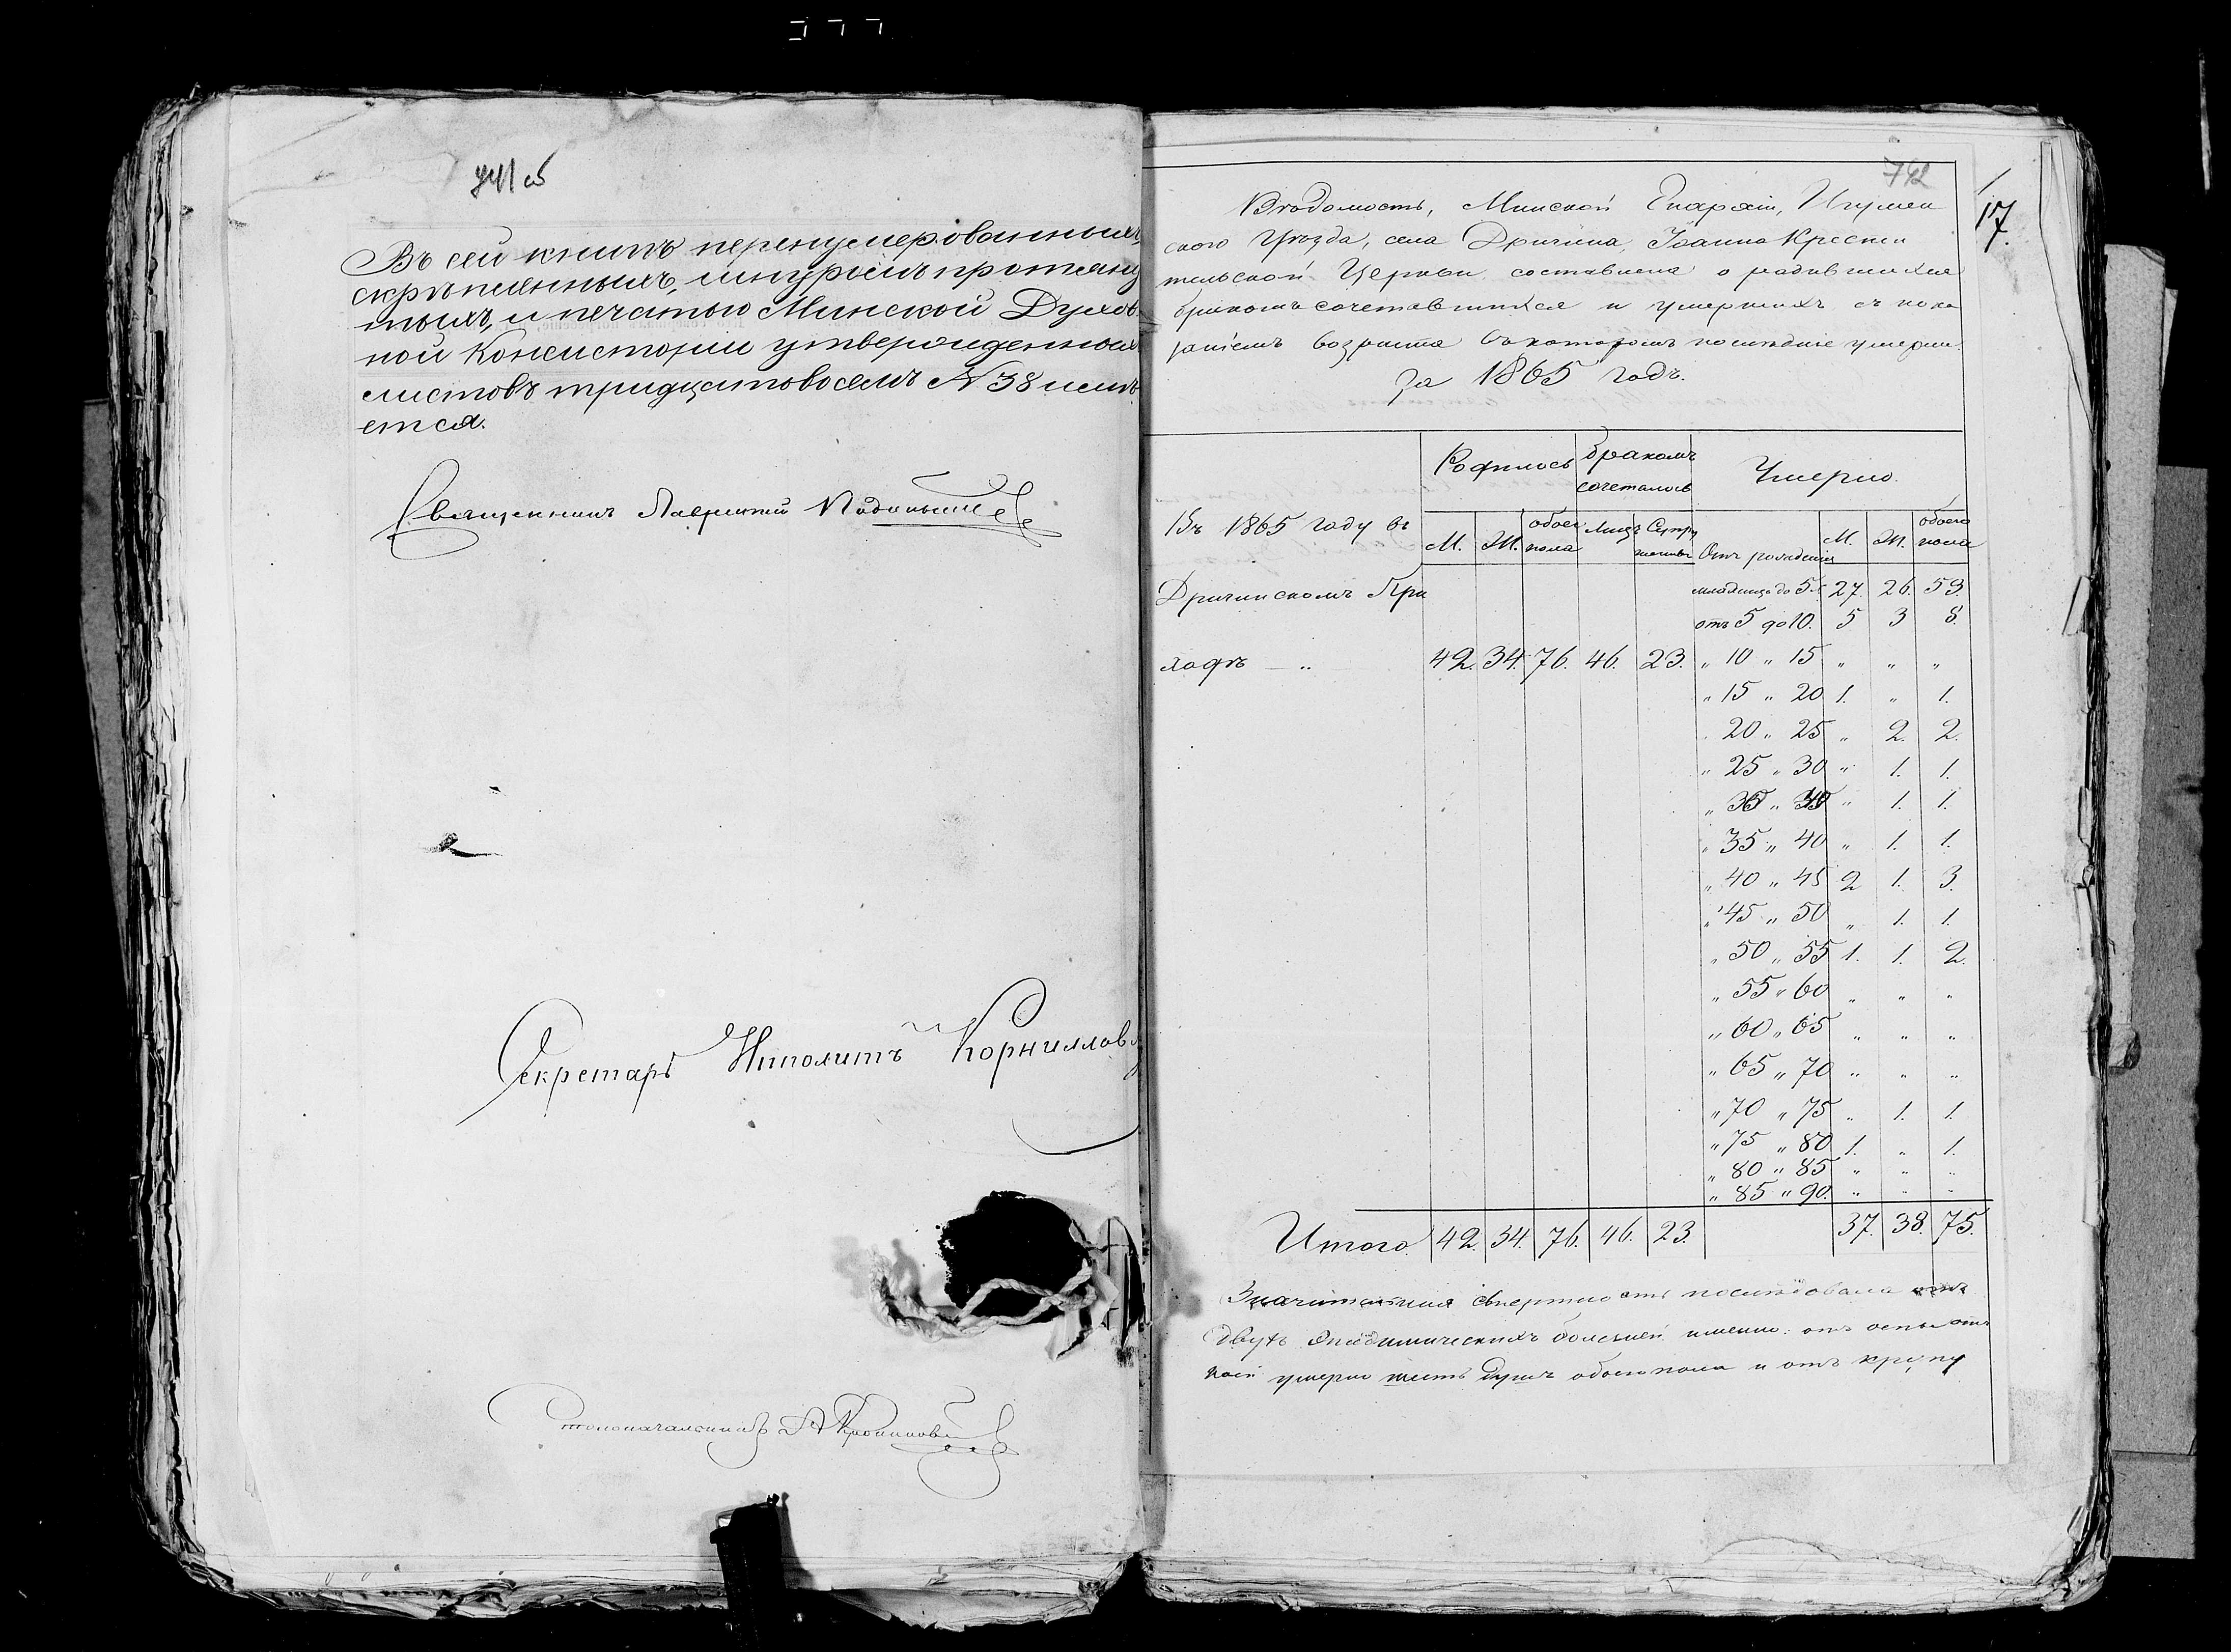 741 об
Въ сей книгѣ перенумерованныхъ,
скрѣпленныхъ, шнуромъ протяну
тыхъ, и печатью Минской Духов
ной Консисторіи утвержденныхъ
листовъ тридцать восемь N 38 имѣ
ется.
Священникъ Лаврентій
Секретарь Иполитъ Корниллов
Столоначальникъ
742
17.
Вѣдомость, Минской Епархіи, Игумен
скаго Уѣзда, села Дричина, Іоанно Крести
тельской Церкви составлена о родившихся
бракомъ сочетавшихся и умершихъ съ пока
заніемъ возраста въ которомъ послѣдніе умерли.
за 1865 годъ.
Родилось бракомъ сочеталось Умерло.
Въ 1865 году въ М. Ж. обоег пола Лицъ Супру жествъ Отъ рожденія М. Ж. обоего пола
Дричинскомъ При младенцъ до 5 27. 26. 53.
отъ 5 до 10. 5 3 8.
ходѣ — „ 42. 34. 76. 46. 23. „ 10 „ 15 „ „ „
„ 15 „ 20 1. „ 1.
„ 20 „ 25 „ 2. 2.
„ 25 „ 30 „ 1. 1.
„ 30 „ 35 „ 1. 1.
„ 35 „ 40 „ 1. 1.
„ 40 „ 45 2 1. 3.
„ 45 „ 50 „ 1. 1.
„ 50 „ 55 1. 1. 2.
„ 55 „ 60 „ „ „
„ 60 „ 65 „ „ „
„ 65 „ 70 „ „ „
„ 70 „ 75 „ 1. 1.
„ 75 „ 80 1. „ 1.
„ 80 „ 85 „ „ „
„ 85 „ 90. „ „ „
Итого. 42. 34. 76. 46. 23. 37. 38. 75.
Значительная смертность послѣдовала отъ
двухъ эпидимическихъ болезней именно: отъ оспы отъ
коей умерло шесть душъ обоего пола и отъ крупу